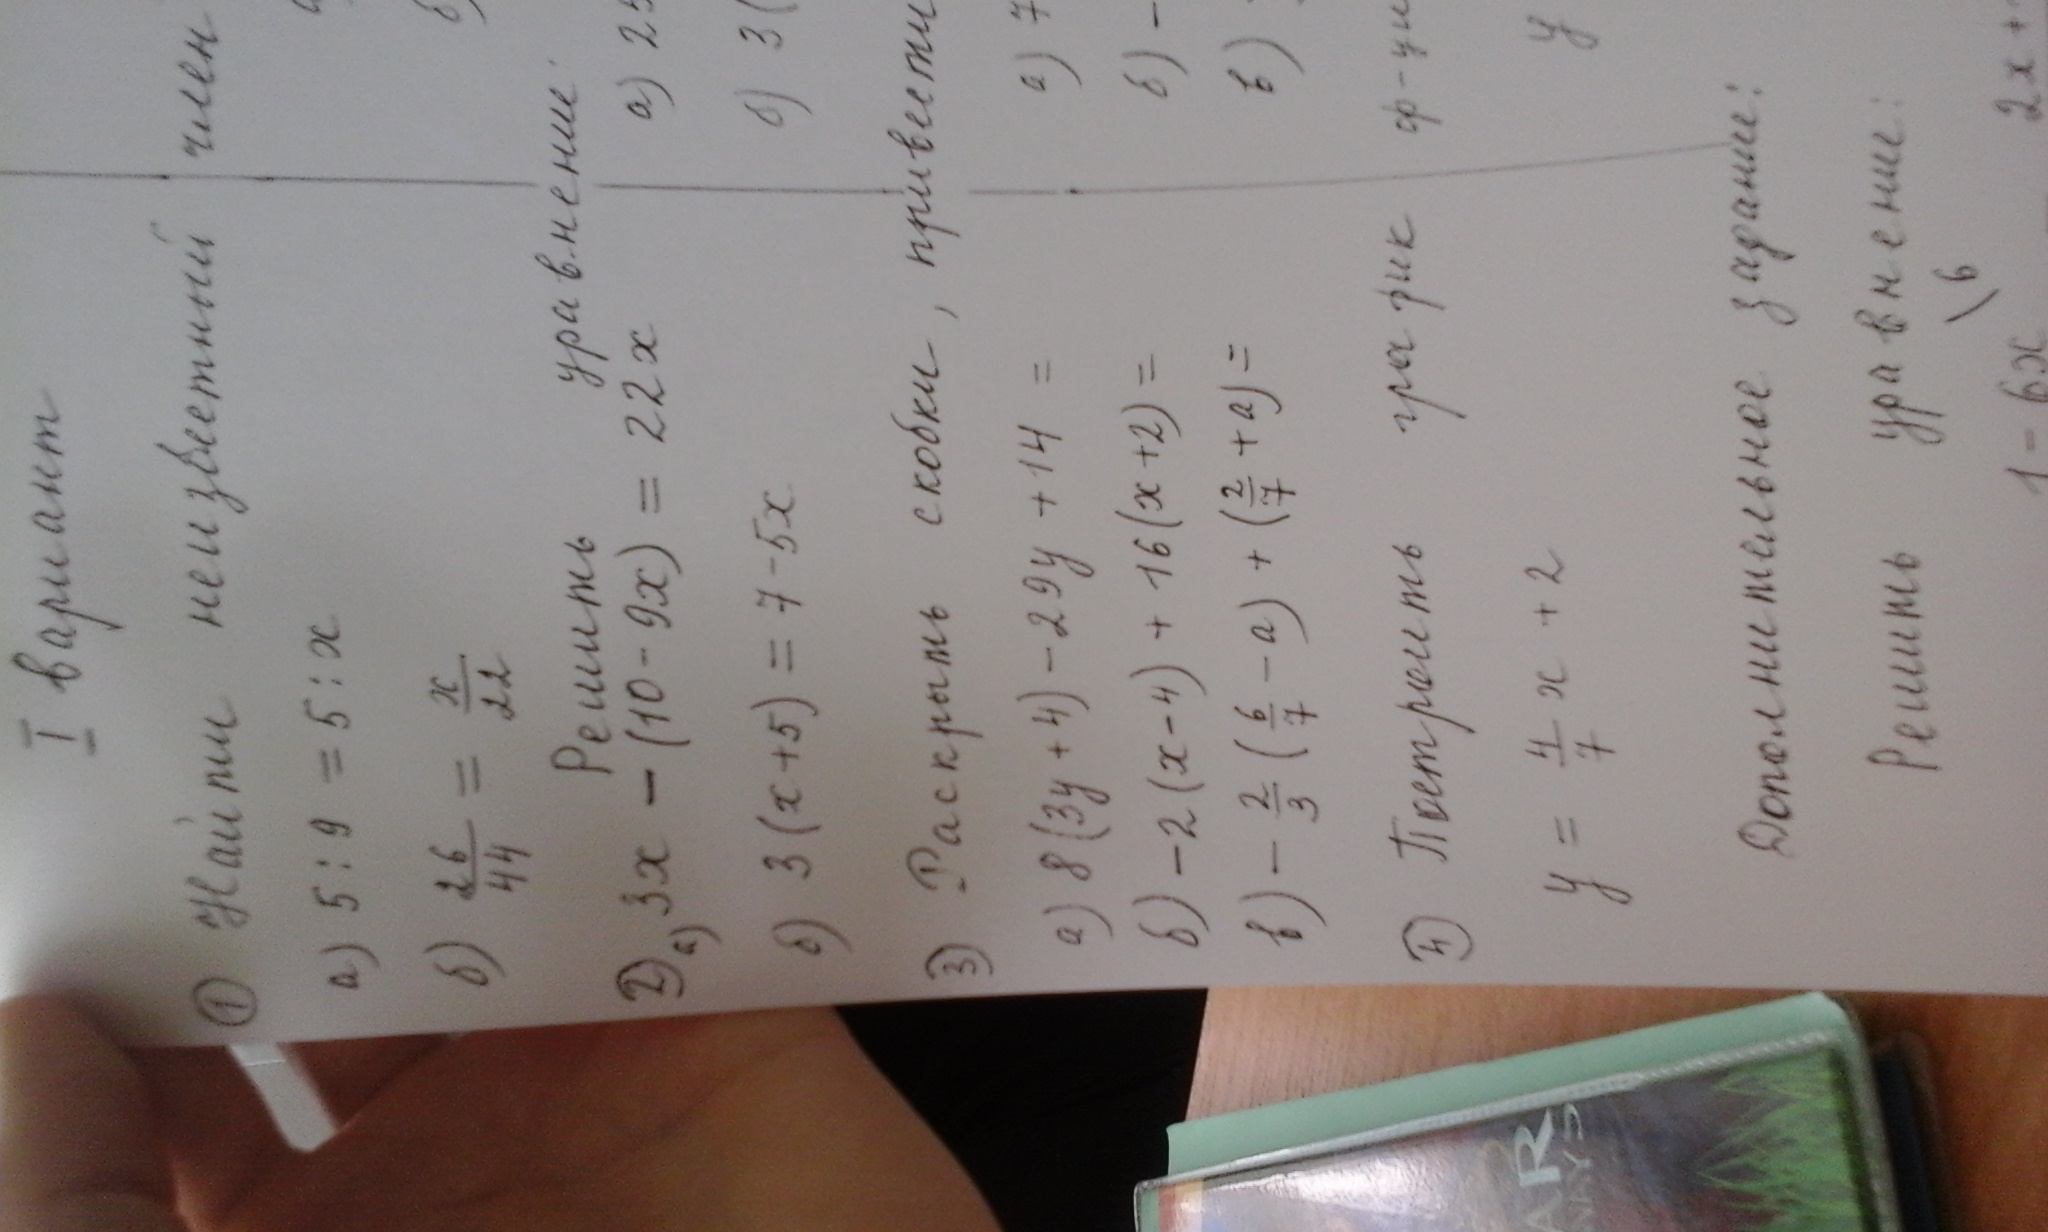 I вариант
① Найти неизвестный член
а) 5 : 9 = 5 : x
б) 26/44 = x/22
б)
Решить уравнение:
2) а) 3x - (10 - 9x) = 22x
а) 25
б) 3(x+5) = 7 - 5x
б) 3(
③ Раскрыть скобки, привести
а) 8(3y + 4) - 29y + 14 =
а) 7
б) -2(x-4) + 16(x+2) =
б) -
в) - 2/3 (6/7 - a) + (2/7 + a) =
в)
4) Построить график ф-ции
y = 4/7 x + 2
y
Дополнительное задание:
Решить уравнение:
\6
1 - 6x 2x +
AR
WAYS